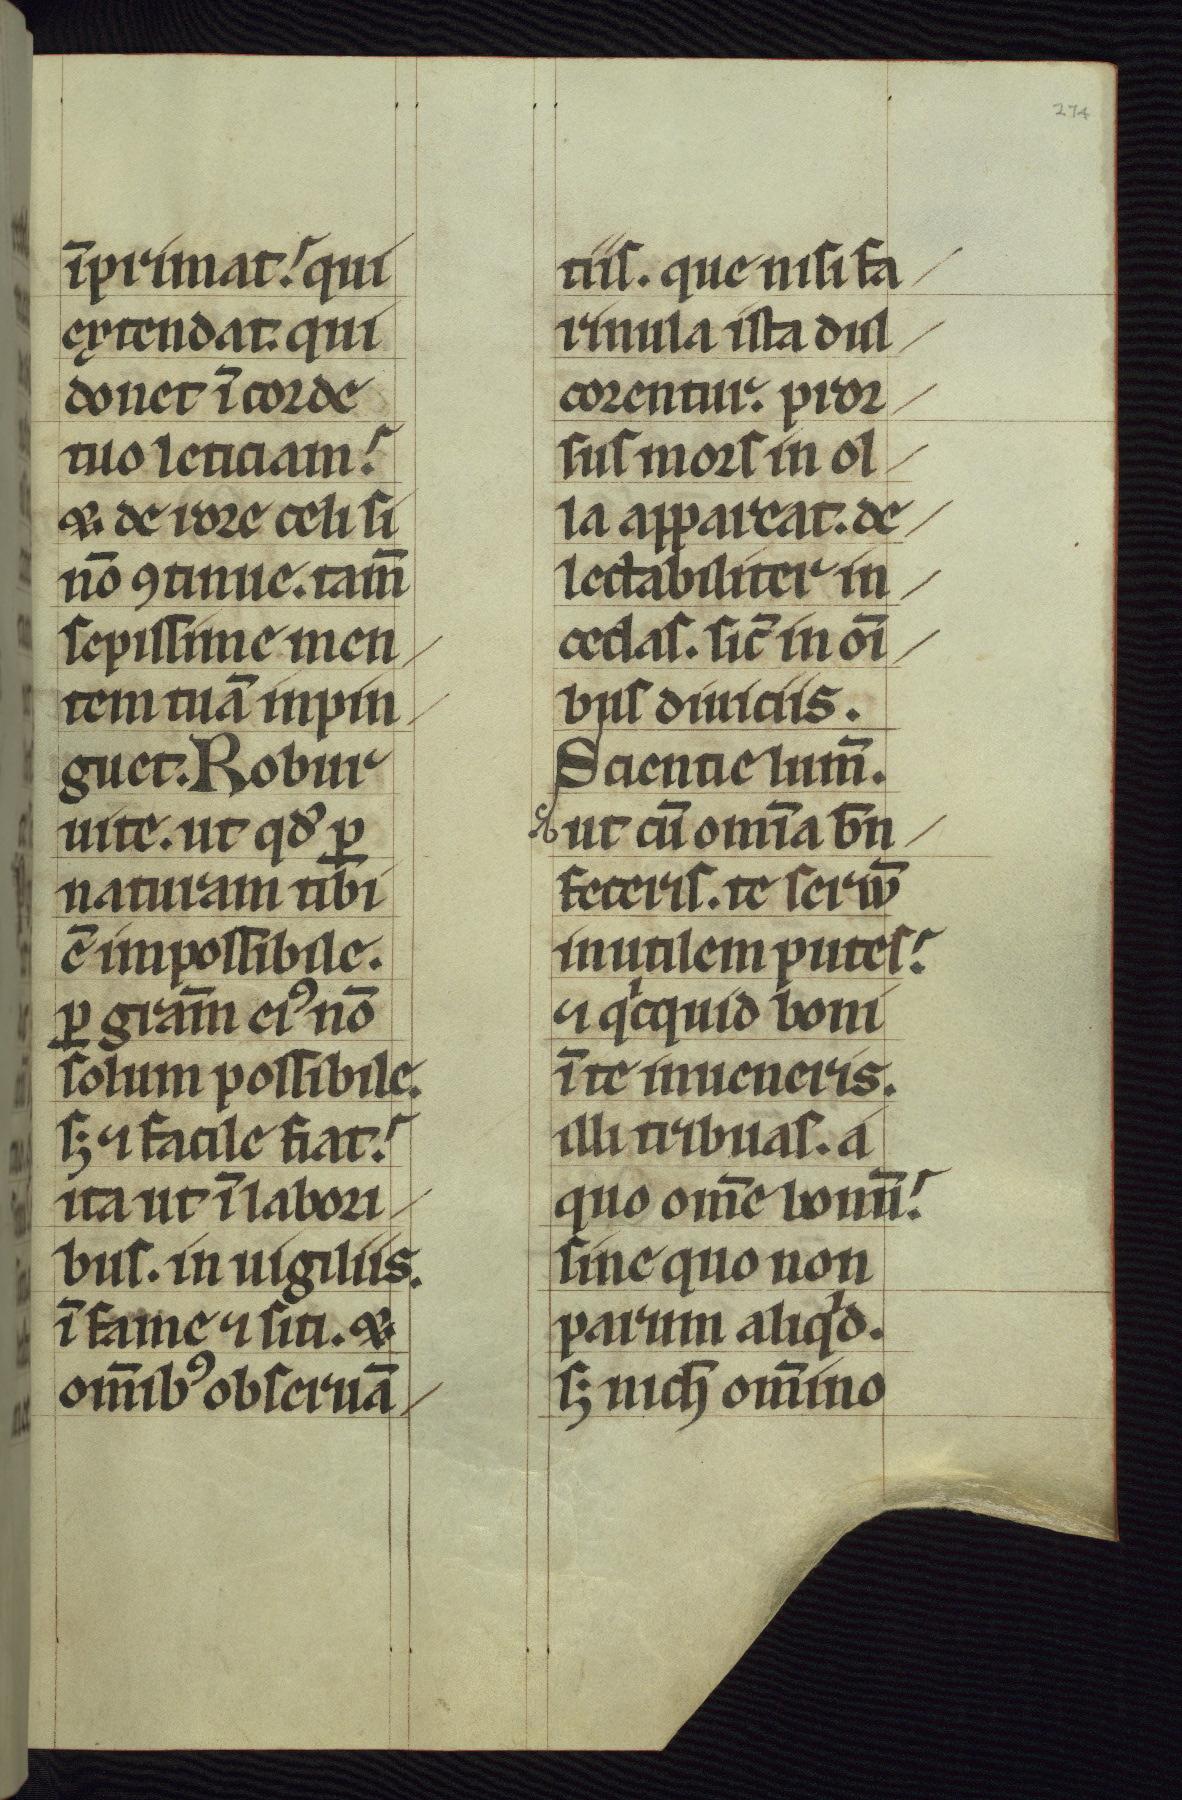 274
īprimat! qui
extendat. qui
donet ī corde
tuo leticiam!
⁊ de rore celi si
nō ꝯtinue. tam̄
sepissime men
tem tuā inpin
guet. Robur
uite. ut qđ ꝑ
naturam tibi
ē impossibile.
ꝑ gram̄ eiꝰ nō
solum possibile.
sꝫ ⁊ facile fiat!
ita ut ī labori
bus. in uigiliis.
ī fame ⁊ siti. ⁊
om̄ibꝰ obseruā
tiis. que nisi fa
rinula ista dul
corentur. pror
sus mors in ol
la appareat. de
lectabiliter in
cedas. sic̄ in oī
bus diuiciis.
Scientie lum̄.
ut cū omīa bn̄
feceris. te seruū
inutilem putes!
⁊ qͥcquid boni
ī te inueneris.
illi tribuas. a
quo om̄e bonū!
sine quo non
parum aliqͥd.
sꝫ nich̄ om̄ino